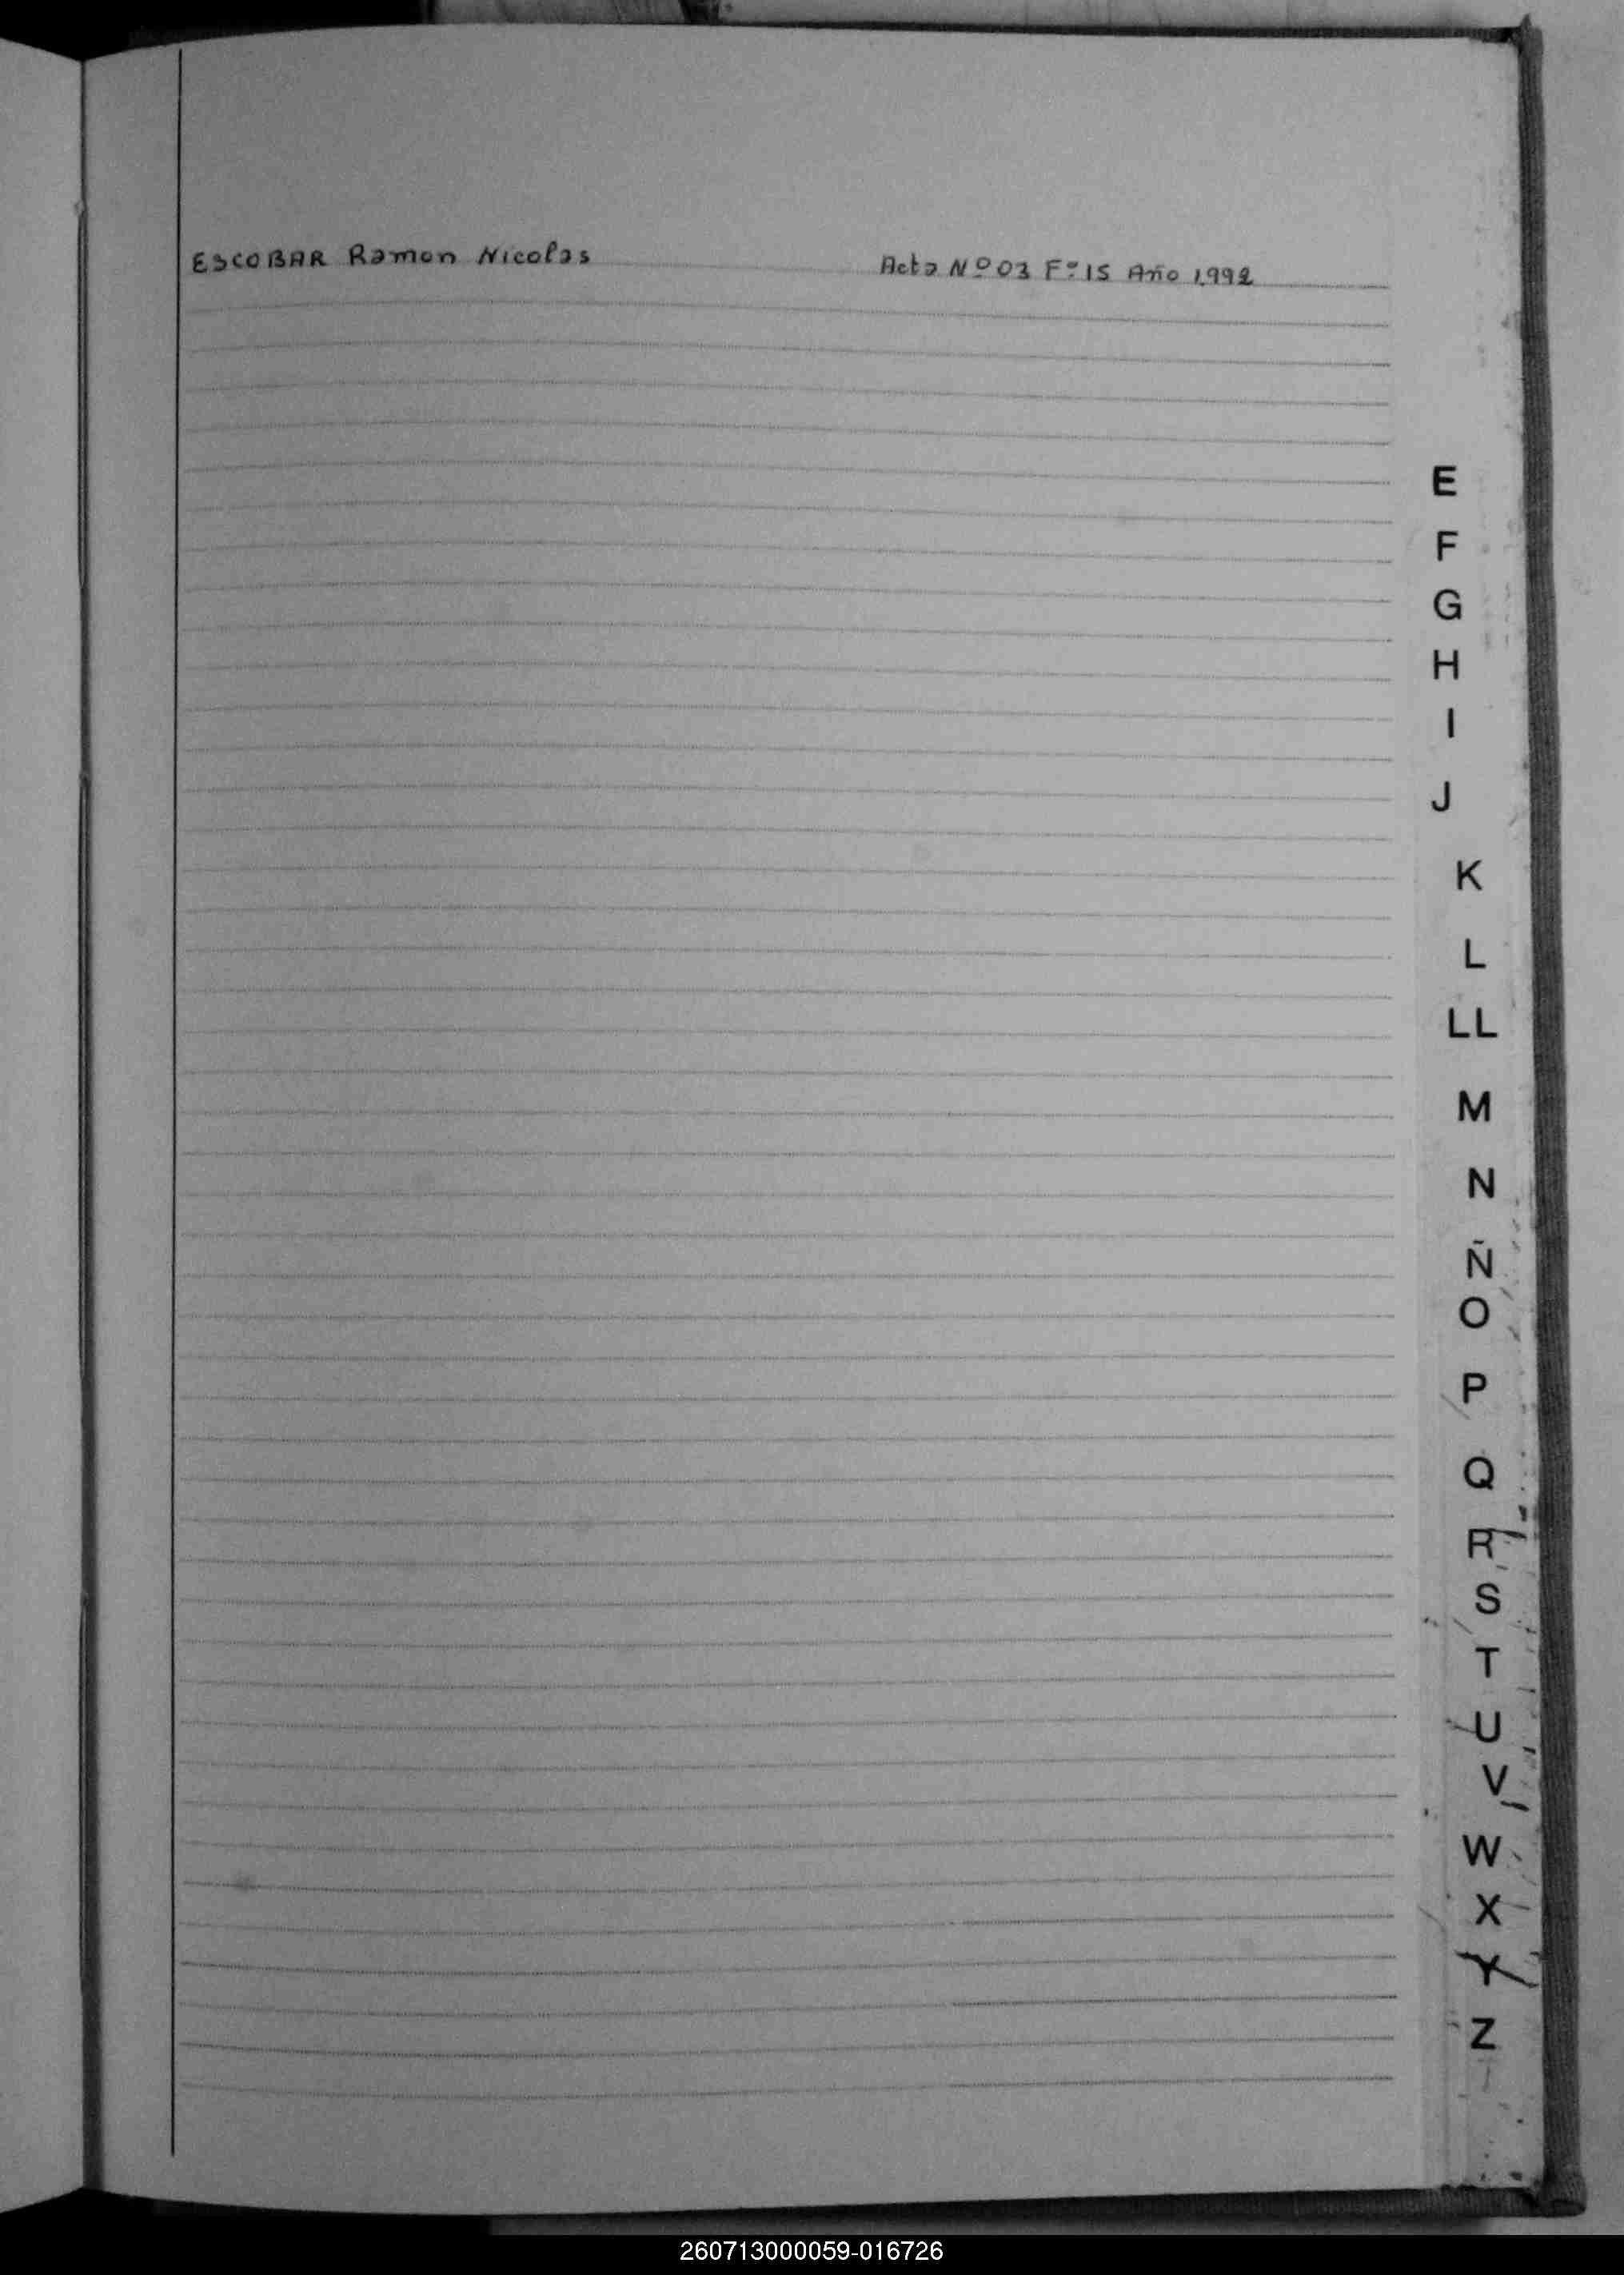 ESCOBAR Ramon Nicolas Acta Nº 03 Fº 15 Año 1992
E
F
G
H
I
J
K
L
LL
M
N
Ñ
O
P
Q
R
S
T
U
V
W
X
Y
Z
260713000059-016726